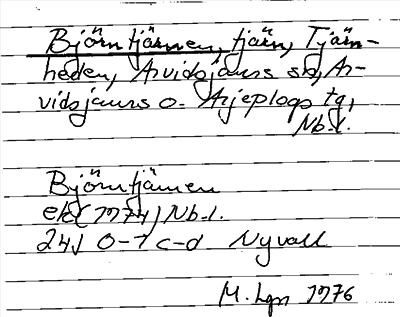 Björntjärnen, tjärn, Tjärn-
heden, Arvidsjaurs sn, Ar-
vidsjaurs o. Arjeplogs tg,
Nb.l.
Björntjärnen
ek (1974) Nb.l.
24J 0-1 c-d Nyvall
M. Lgn 1976